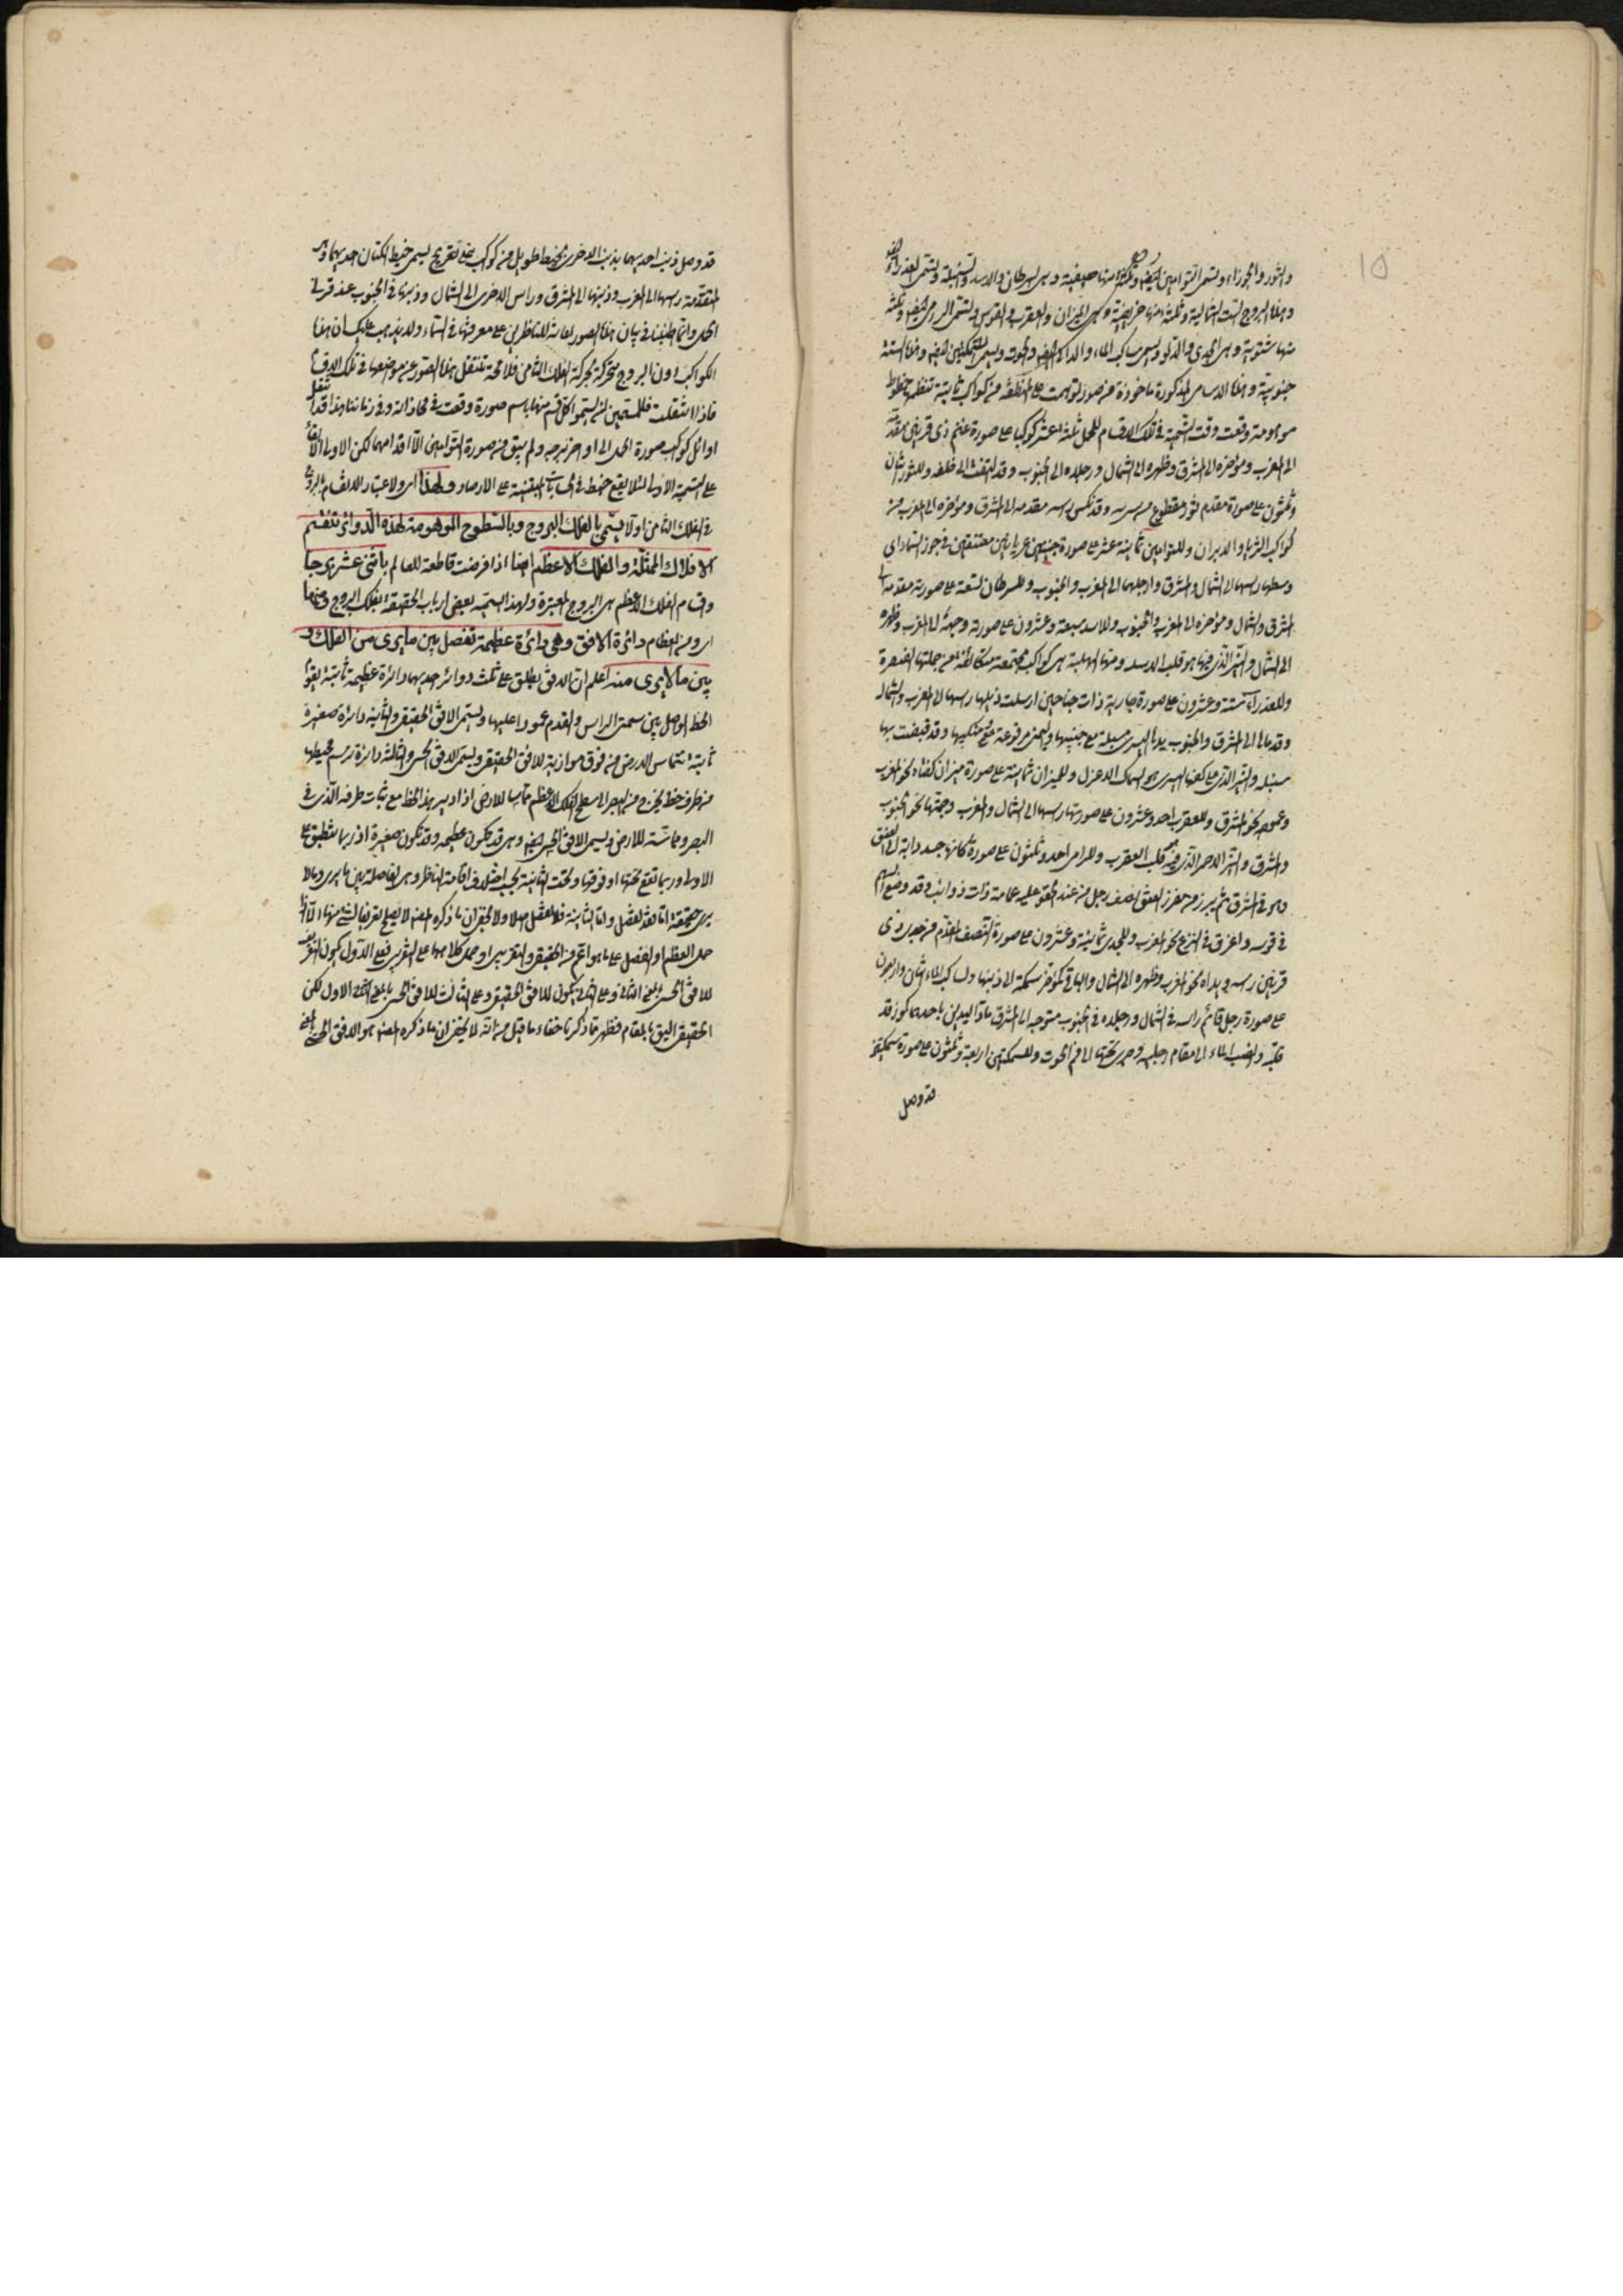 والثور والجوزاء وتسمى التوامين ايضا وثلثة منها صيفية وهي السرطان والاسد والسنبلة وتسمى العذراء ايضا
وهذه البروج الست شمالية وثلثة منها خريفية وهي الميزان والعقرب والقوس وتسمى الرامي ايضا وثلثة
منها شتوية وهي الجدي والدلو ويسمى ساكب الماء والدالي ايضا والحوت ويسمى السمكتين ايضا وهذه الستة
جنوبية وهذه الاسامي المذكورة ماخوذة من صور توهمت على المنطقة من كواكب ثابتة تنظمها خطوط
موهومة وقعت وقت التسمية في تلك الاقسام للحمل ثلثة عشر كوكبا على صورة غنم ذي قرنين مقدمه
الى المغرب ومؤخره الى المشرق وظهره الى الشمال ورجلاه الى الجنوب وقد التفت الى خلفه وللثور اثنان
وثلثون على صورة مقدم ثور مقطوع من سرته وقد نكس راسه مقدمه الى المشرق ومؤخره الى المغرب من
كواكبه الثريا والدبران وللتوامين ثمانية عشر على صورة صبيين عريانين معتنقين في جوز السماء اي
وسطها راسهما الى الشمال والمشرق وارجلهما الى المغرب والجنوب وللسرطان تسعة على صورته مقدمه الى
المشرق والشمال ومؤخره الى المغرب والجنوب وللاسد سبعة وعشرون على صورته وجهه الى المغرب وظهره
الى الشمال والنير الذي فيها هو قلب الاسد ومنها الهلبة هي كواكب مجتمعة متكاثفة من جملتها الضفيرة
وللعذراء ستة وعشرون على صورة جارية ذات جناحين ارسلت ذيلها راسها الى المغرب والشمال
وقدماها الى المشرق والجنوب يدها اليسرى مسبلة مع جنبها واليمنى مرفوعة مع منكبها وقد قبضت بها
سنبلة والنير الذي على كفها اليسرى هو السماك الاعزل وللميزان ثمانية على صورة ميزان كفتاه نحو المغرب
وعموده نحو المشرق وللعقرب احد وعشرون على صورتها راسها الى الشمال والمغرب وحمتها نحو الجنوب
والمشرق والنير الاحمر الذي فيه قلب العقرب وللرامي احد وثلثون على صورة كانها جسد دابة الى العنق
وهو في المشرق ثم يبرز من مغرز العنق نصف رجل من عند الحقو عليه عمامة ذات ذوائب وقد وضع السهم
في قوسه واغرق في النزع نحو المغرب وللجدي ثمانية وعشرون على صورة النصف المقدم من جدي ذي
قرنين راسه ويداه نحو المغرب وظهره الى الشمال والباقي كمؤخر سمكة الى ذنبها ولساكب الماء اثنان واربعون
على صورة رجل قائم راسه في الشمال ورجلاه في الجنوب متوجه الى المشرق ماد اليدين باحدهما كوز قد
قلبه وانصب الماء الى مقام رجليه وجرى تحتها الى فم الحوت وللسمكتين اربعة وثلثون على صورة سمكتين
قد وصل
قد وصل ذنب احديهما بذنب الاخرى بخيط طويل من كواكب على تعريج يسمى خيط الكتان احديهما وهي
المتقدمة راسها الى المغرب وذنبها الى المشرق وراس الاخرى الى الشمال وذنبها في الجنوب عند قرني
الحمل وانما اطنبنا في بيان هذه الصور اعانة للناظرين على معرفتها في السماء ولا يذهب عليك ان هذه
الكواكب دون البروج متحركة بحركة الفلك الثامن فلا محة تنتقل هذه الصور عن مواضعها في تلك الاقسام
فاذا انتقلت فللمنجمين ان يسموا كل قسم منها باسم صورة وقعت في محاذاته وفي زماننا هذا قد انتقل
اوائل كواكب صورة الحمل الى اواخر برجه ولم يبق من صورة التوامين الا اقدامهما لكن الاولى الابقاء
على التسمية الاولى لئلا يقع خبط في الحسابات المبتنية على الارصاد ولهذا اي ولاعتبار الاقسام البروج
في الفلك الثامن اولا يسمى بالفلك البروج وبالسطوح الموهومة لهذه الدوائر تنقسم
الافلاك الممثلة والفلك الاعظم ايضا اذا فرضت قاطعة للعالم باثني عشر برجا
واقسام الفلك الاعظم هي البروج المعتبرة ولهذا يسميه بعض ارباب الحقيقة بفلك البروج ومنها
اي ومن العظام دائرة الافق وهي دائرة عظيمة تفصل بين ما يرى من الفلك و
بين ما لا يرى منه اعلم ان الافق يطلق على ثلث دوائر احديها دائرة عظيمة ثابتة يقوم
الخط الواصل بين سمت الراس والقدم عمودا عليها ويسمى الافق الحقيقي والثانية دائرة صغيرة
ثابتة تماس الارض من فوق موازية للافق الحقيقي ويسمى الافق الحسي والثالثة دائرة ترسم محيطها
من طرف خط يخرج من البصر الى سطح الفلك الاعظم مماسا للارض اذا ادير هذا الخط مع ثبات طرفه الذي في
البصر ومماسته للارض ويسمى الافق الحسي ايضا وهي قد تكون عظيمة وقد تكون صغيرة اذ ربما تنطبق على
الاولى وربما تقع تحتها او فوقها وتحت الثانية بحسب اختلاف قامة الناظر وهي الفاصلة بين ما يرى وما لا
يرى حقيقة اما بعد الفصل واما الثانية فلا تفصل اصلا ولا يخفى ان ما ذكره المص لا يصلح تعريفا لشيء منها الا اذا
حمل العظم او الفصل على ما هو اعم من الحقيقي والتقريبي او حمل كلاهما على التقريبي فعلى الاول يكون التعريف
للافق الحسي بالمعنى الثاني وعلى الثاني يكون للافق الحقيقي وعلى الثالث للافق الحسي بالمعنى الاول لكن
الحقيقي اليق بالمقام فظهر مما ذكرنا خفاء ما قيل من انه لا يخفى ان ما ذكره المص هو الافق الحسي بالمعنى